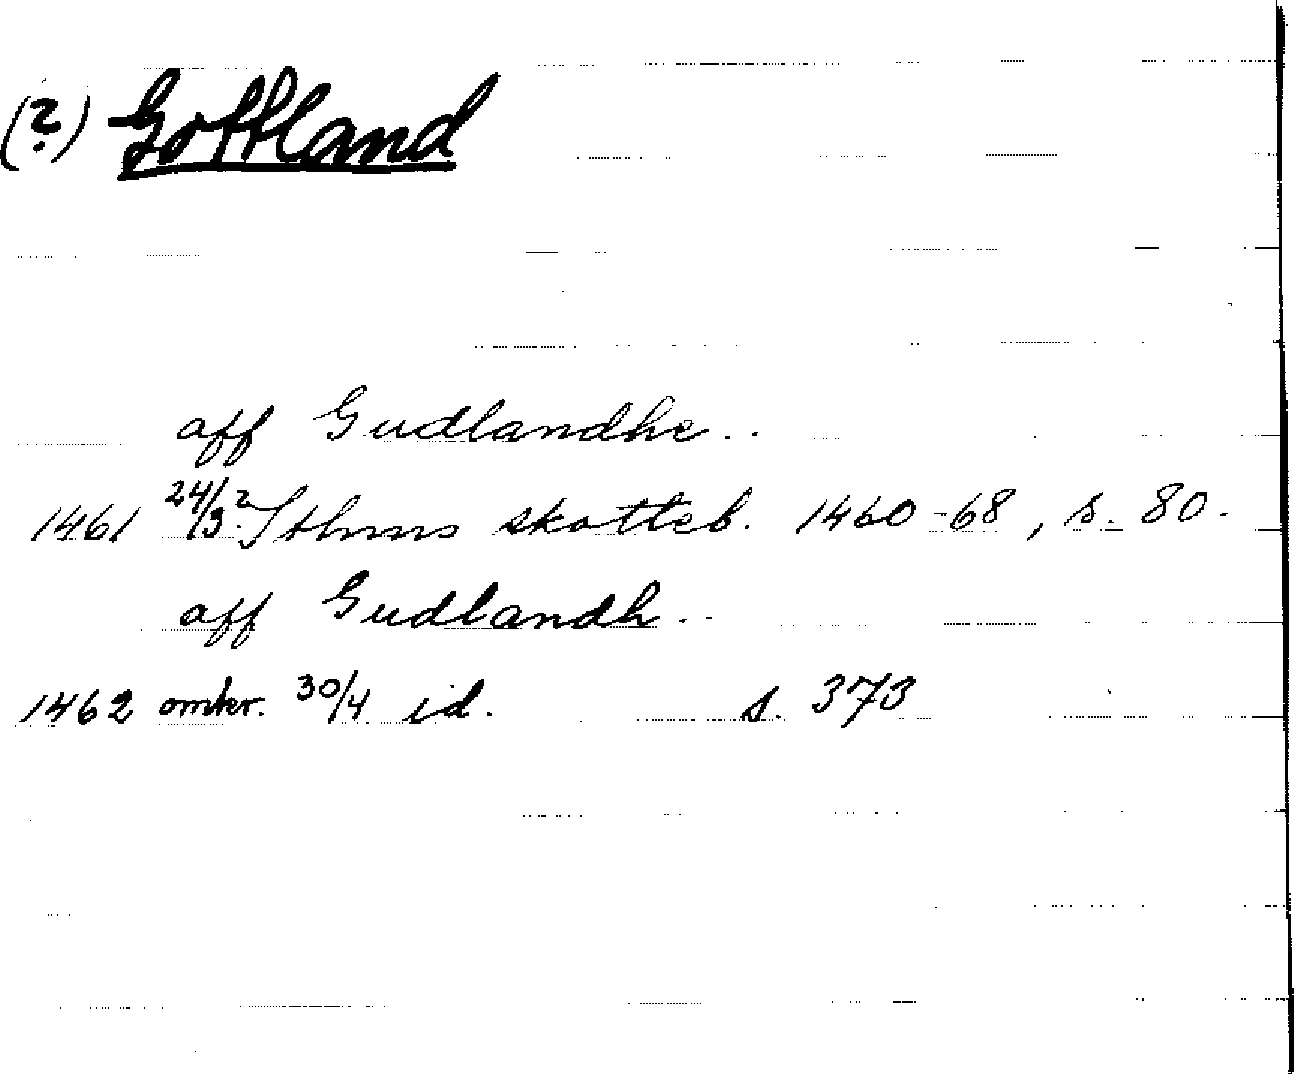 (?) Gottland
aff Gudlandhe..
1461 24/3? Sthms skotteb. 1460-68, s. 80.
aff Gudlandh..
1462 omkr. 30/4 id. s. 373